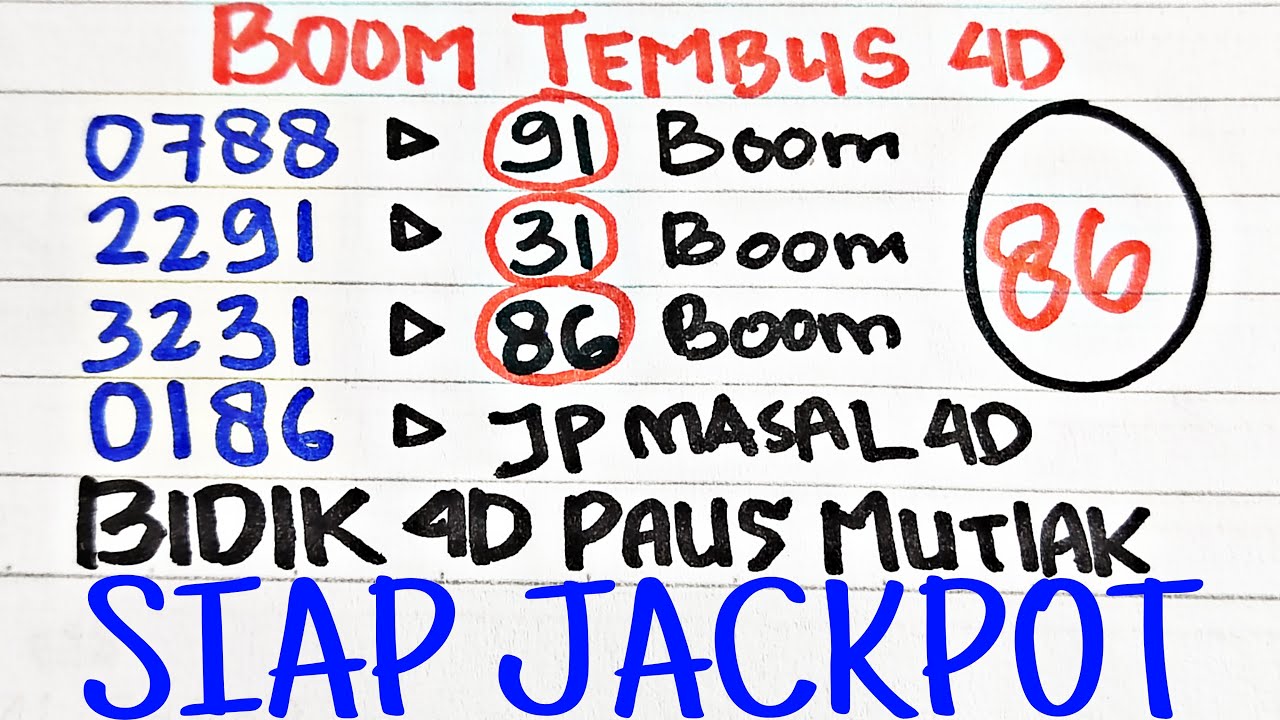 BOOM TEMBUS 4D
0788 ▷ 91 Boom
2291 ▷ 31 Boom
3231 ▷ 86 Boom
86
0186 ▷ JP MASAL 4D
BIDIK 4D PAUS MUTLAK
SIAP JACKPOT